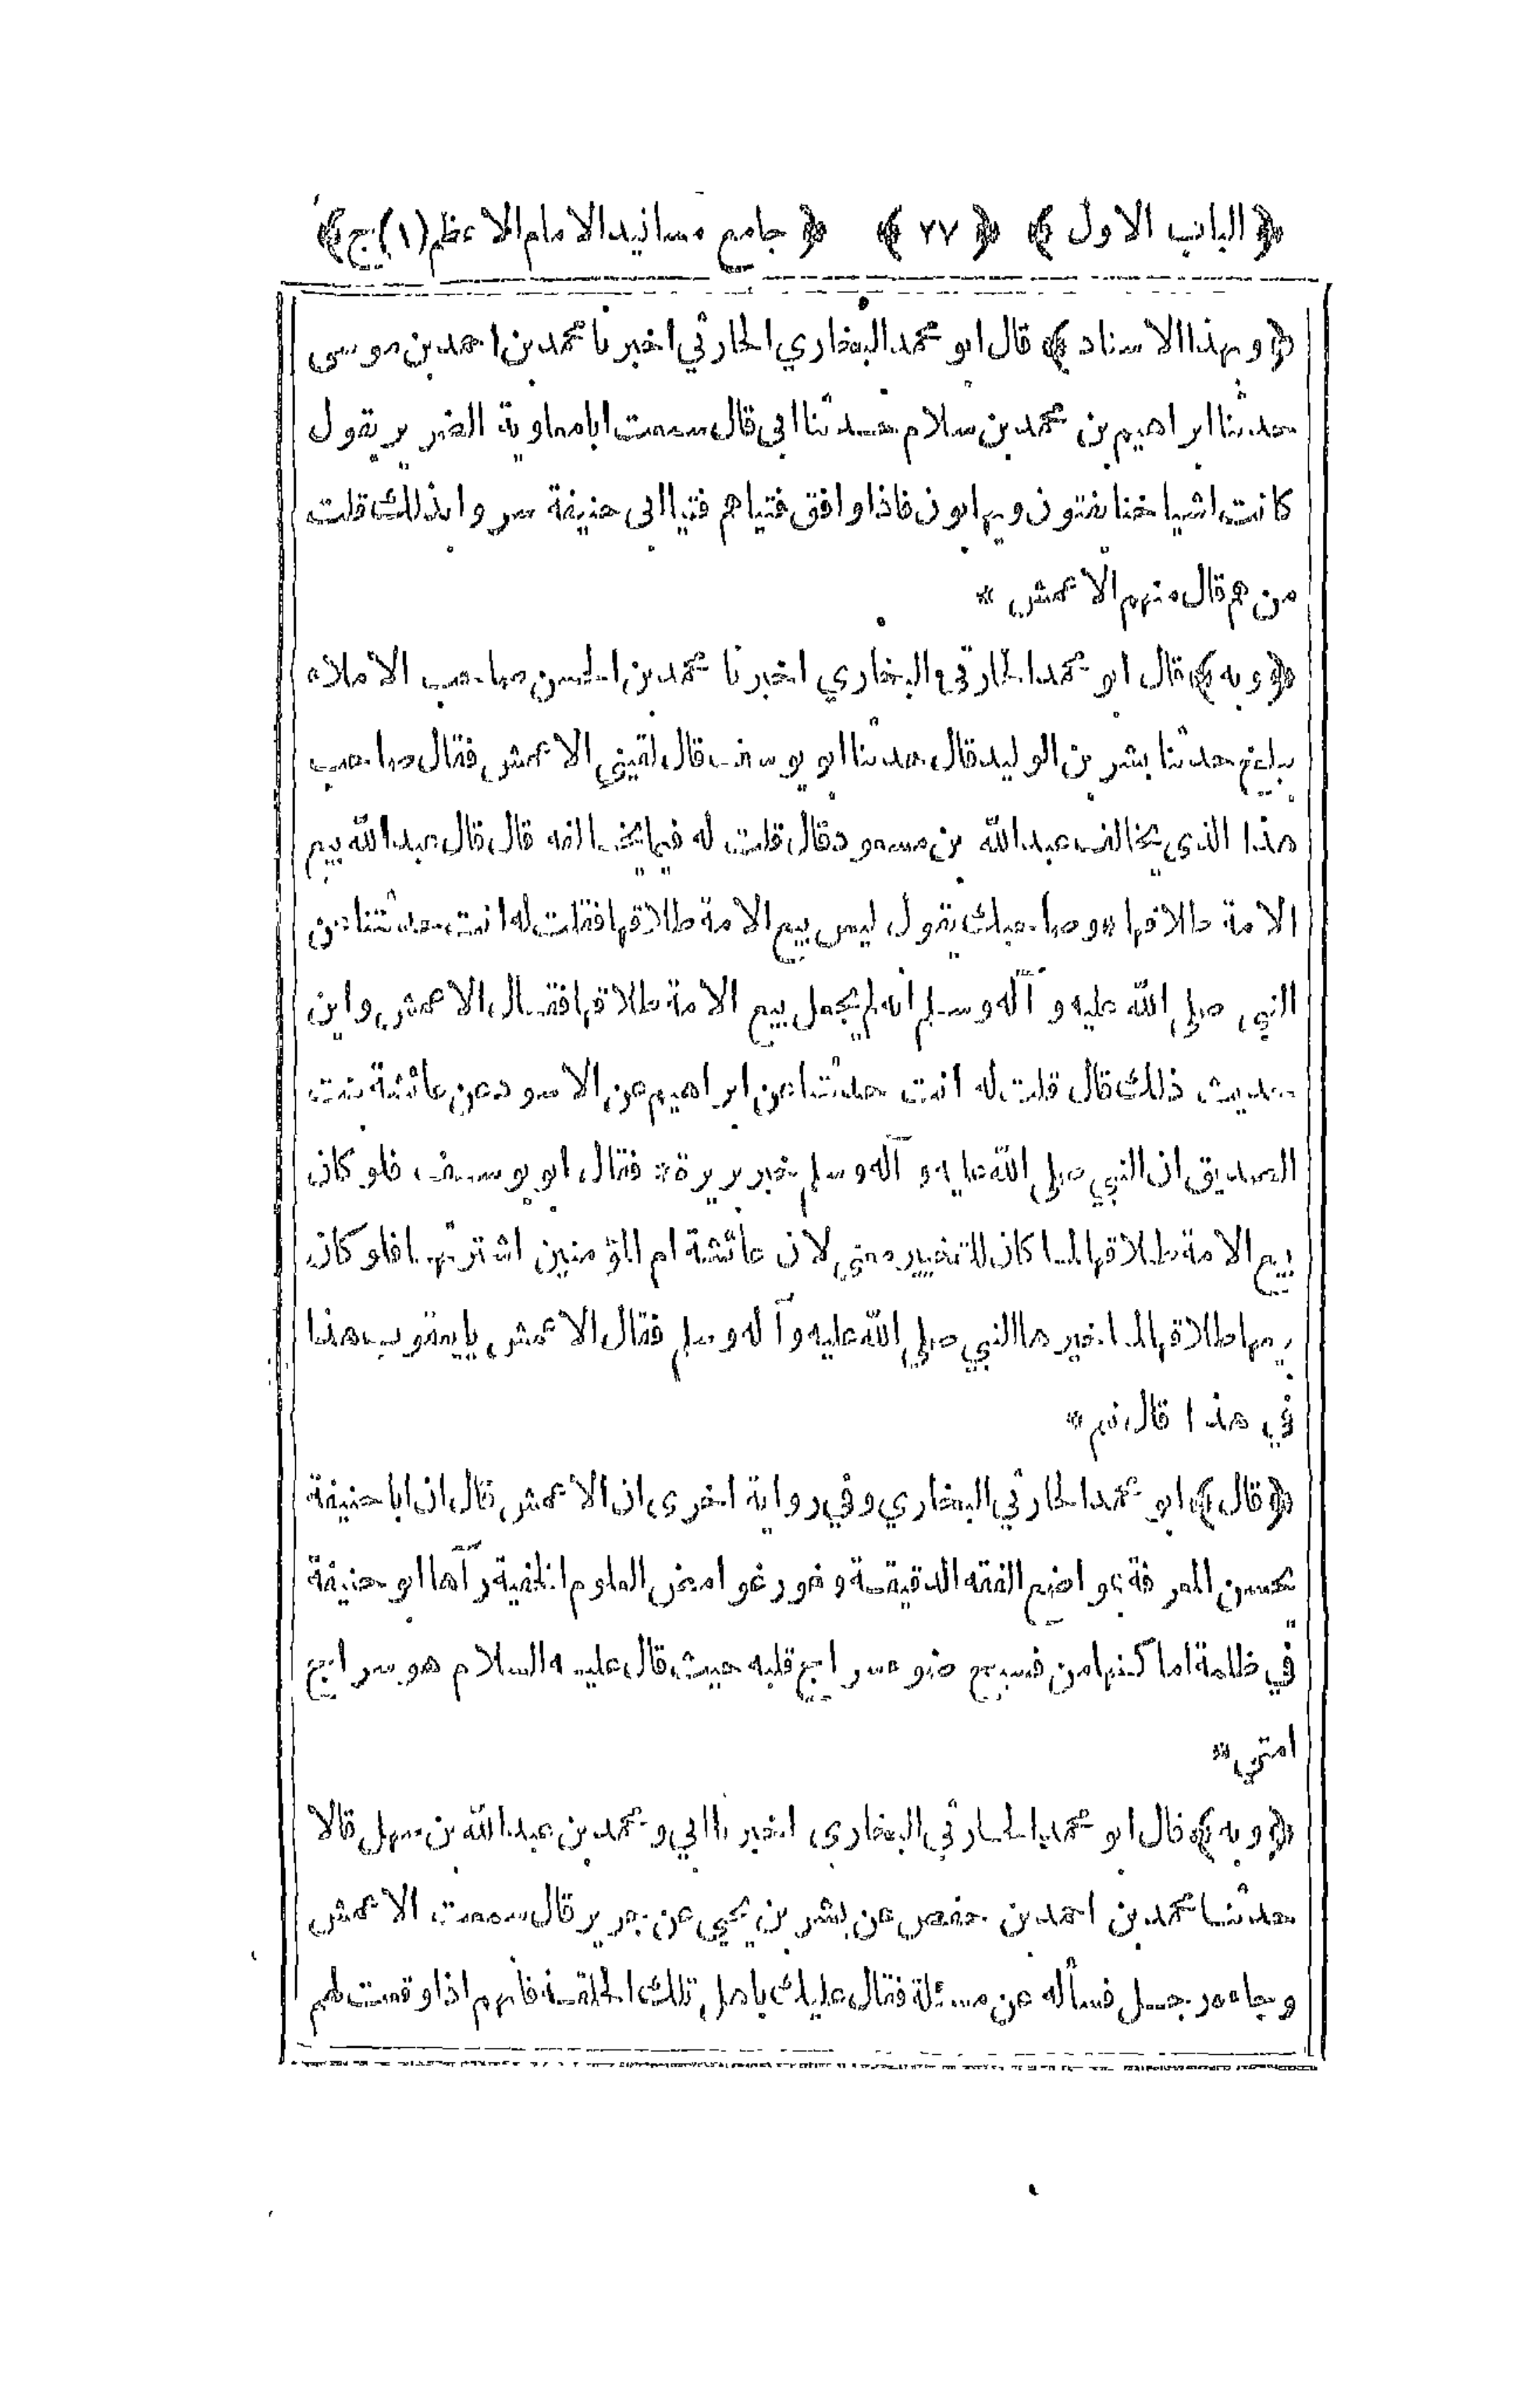 ﴿الباب الاول﴾ ﴿٢٧﴾ ﴿جامع مسانيد الامام الاعظم(١)ج﴾
﴿وبهذا الاسناد﴾ قال ابو محمد البخاري الحارثي اخبرنا محمد بن احمد بن موسى
حدثنا ابراهيم بن محمد بن سلام حدثنا ابى قال سمعت ابا معاوية الضرير يقول
كانت اشياخنا يفتون ويهابون فاذا وافق فتياهم فتيا ابى حنيفة سروا بذلك قلت
من هم قال منهم الاعمش *
﴿وبه﴾ قال ابو محمد الحارثي البخاري اخبرنا محمد بن الحسن صاحب الاملاء
ببلخ حدثنا بشر بن الوليد قال حدثنا ابو يوسف قال لقيني الاعمش فقال صاحب
هذا الذى يخالف عبد الله بن مسعود قال قلت له فيما يخالفه قال قال عبد الله بيع
الامة طلاقها وصاحبك يقول ليس بيع الامة طلاقها فقلت له انت حدثتنا عن
النبي صلى الله عليه وآله وسلم انه لم يجعل بيع الامة طلاقها فقال الاعمش واين
حديث ذلك قال قلت له انت حدثتنا عن ابراهيم عن الاسود عن عائشة بنت
الصديق ان النبي صلى الله عليه وآله وسلم خير بريرة * فقال ابو يوسف فلو كان
بيع الامة طلاقها لما كان للتخيير معنى لان عائشة ام المؤمنين اشترتها فلو كان
بيعها طلاقها لما خيرها النبي صلى الله عليه وآله وسلم فقال الاعمش يا يعقوب هذا
في هذا قال نعم *
﴿قال﴾ ابو محمد الحارثي البخاري وفي رواية اخرى ان الاعمش قال ان ابا حنيفة
يحسن المعرفة بمواضع الفقه الدقيقة وغور غوامض العلوم الخفية رآها ابو حنيفة
في ظلمة اماكنها من فسيح ضوء سراج قلبه حيث قال عليه السلام هو سراج
امتي *
﴿وبه﴾ قال ابو محمد الحارثي البخارى اخبرنا ابي و محمد بن عبد الله بن سهل قالا
حدثنا محمد بن احمد بن حفص عن بشر بن يحيى عن جرير قال سمعت الاعمش
وجاءه رجل فسأله عن مسئلة فقال عليك باهل تلك الحلقة فانهم اذا وقعت لهم